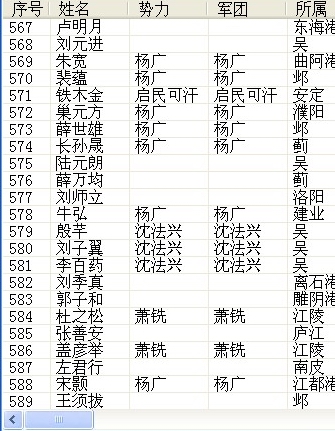 序号 姓名 势力 军团 所属
567 卢明月 东海港
568 刘元进 吴
569 朱宽 杨广 杨广 曲阿港
570 裴蕴 杨广 杨广 邺
571 铁木金 启民可汗 启民可汗 安定
572 巢元方 杨广 杨广 濮阳
573 薛世雄 杨广 杨广 邺
574 长孙晟 杨广 杨广 蓟
575 陆元朗 吴
576 薛万均 蓟
577 刘师立 洛阳
578 牛弘 杨广 杨广 建业
579 殷芊 沈法兴 沈法兴 吴
580 刘子翼 沈法兴 沈法兴 吴
581 李百药 沈法兴 沈法兴 吴
582 刘季真 离石港
583 郭子和 雕阴港
584 杜之松 萧铣 萧铣 江陵
585 张善安 庐江
586 盖彦举 萧铣 萧铣 江陵
587 左君行 南皮
588 宋颢 杨广 杨广 江都港
589 王须拔 邺